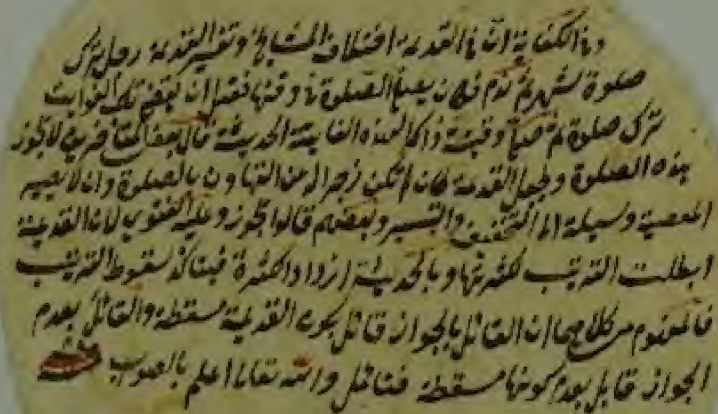 وفى الكفاية ان فى القديمة اختلاف المشايخ وتفسير القديمة رجل ترك
صلوة شهر ثم ندم فكان يصلى الصلوة فى وقتها فقبل ان يقضى تلك الفوايت
ترك صلوة ثم صلى وقتية ذاكرا لهذه الفايتة الحديثة قال بعض المتأخرين لا يجوز
هذه الصلوة ويجعل القديمة كان لم تكن زجرا له من التهاون بالصلوة وان لا يصير
المعصية وسيلة الى التخفيف والتيسير وبعضهم قالوا يجوز وعليه الفتوى لان القديمة
ابطلت الترتيب لكثرتها وبالحديثة ازداد الكثرة فيتأكد سقوط الترتيب
فالمفهوم من كلامهما ان القائل بالجواز قائل بكون القديمة مسقطة والقائل بعدم
الجواز قايل بعدم كونها مسقطة فتأمل والله تعالى اعلم بالصواب